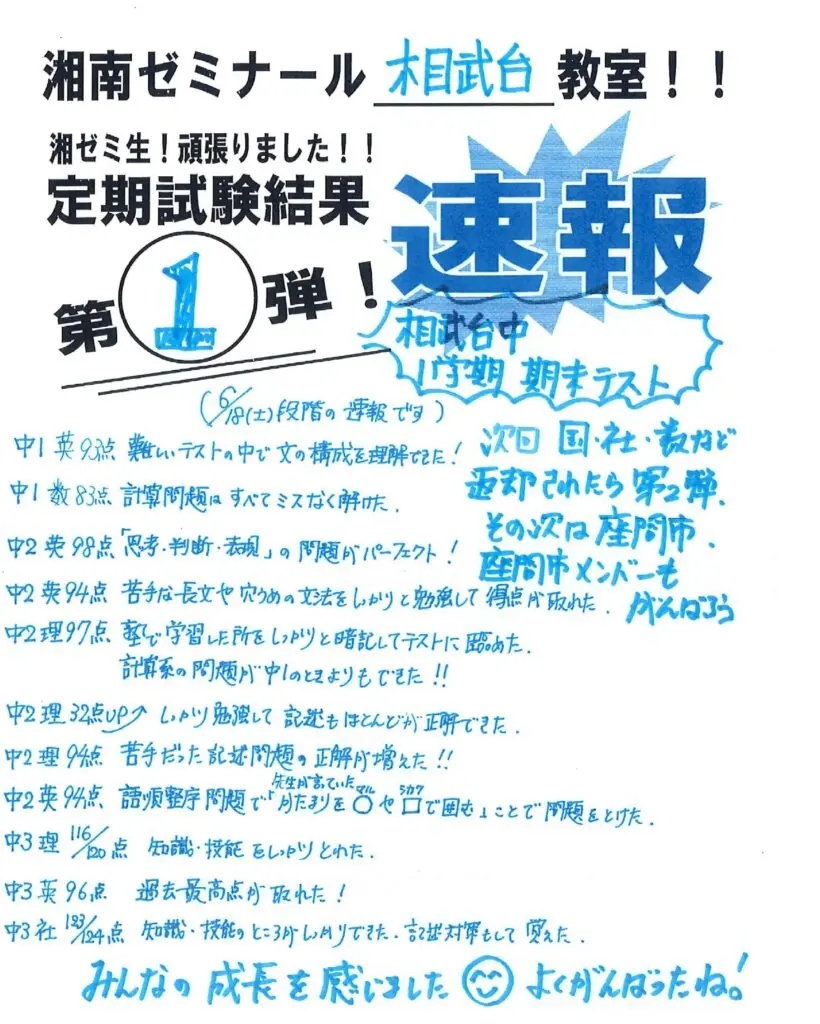 湘南ゼミナール 相武台 教室！！
湘ゼミ生！頑張りました！！
定期試験結果
速報
第1弾！
相武台中
1学期 期末テスト
(6/18(土)段階の速報です)
次回 国・社・数など
返却されたら第2弾.
その次は座間市.
座間市メンバーも
がんばろう
中1 英93点 難しいテストの中で文の構成を理解できた！
中1 数83点 計算問題はすべてミスなく解けた.
中2 英98点「思考・判断・表現」の問題がパーフェクト！
中2 英94点 苦手な長文や穴うめの文法をしっかりと勉強して得点が取れた.
中2 理97点 塾で学習した所をしっかりと暗記してテストに臨めた.
計算系の問題が中1のときよりもできた!!
中2 理32点UP しっかり勉強して記述もほとんどが正解できた.
中2 理94点 苦手だった記述問題の正解が増えた!!
先生が言っていた マル シカク
中2 英94点 語順整序問題で「かたまりを○や□で囲む」ことで問題をとけた.
中3 理 116/120点 知識・技能をしっかりとれた.
中3 英96点 過去最高点が取れた！
中3 社 123/124点 知識・技能のところがしっかりできた.記述対策もして覚えた.
みんなの成長を感じました よくがんばったね！